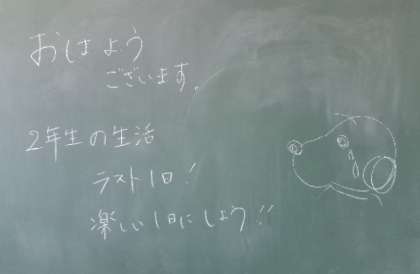 おはよう
ございます。
2年生の生活
ラスト1日!
楽しい1日にしよう!!